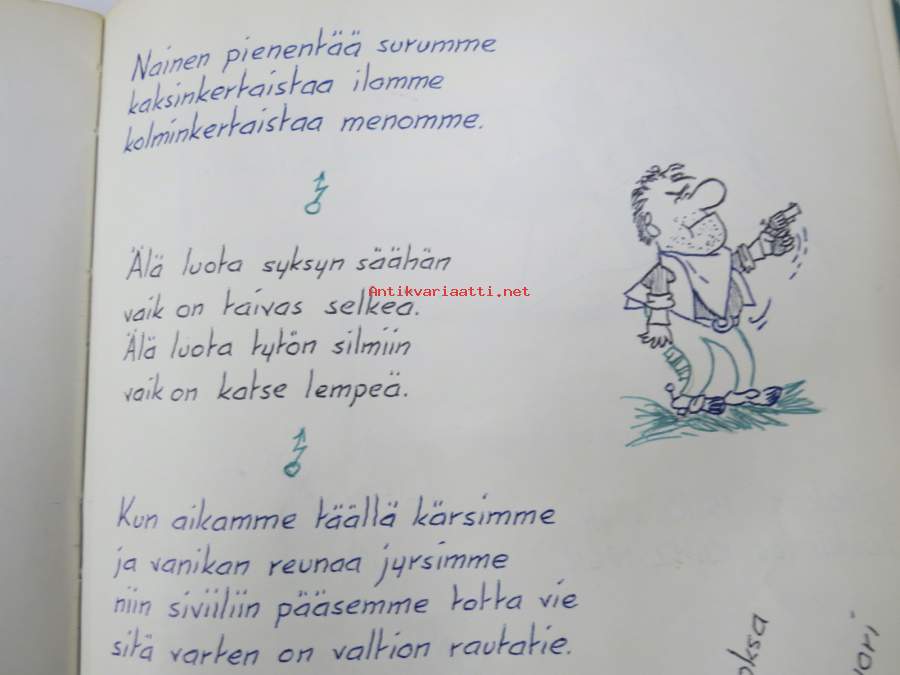 Nainen pienentää surumme
kaksinkertaistaa ilomme
kolminkertaistaa menomme.
Älä luota syksyn säähän
vaik on taivas selkea.
Älä luota tytön silmiin
vaik on katse lempeä.
Kun aikamme täällä kärsimme
ja vanikan reunaa jyrsimme
niin siviiliin pääsemme totta vie
sitä varten on valtion rautatie.
Antikvariaatti.net